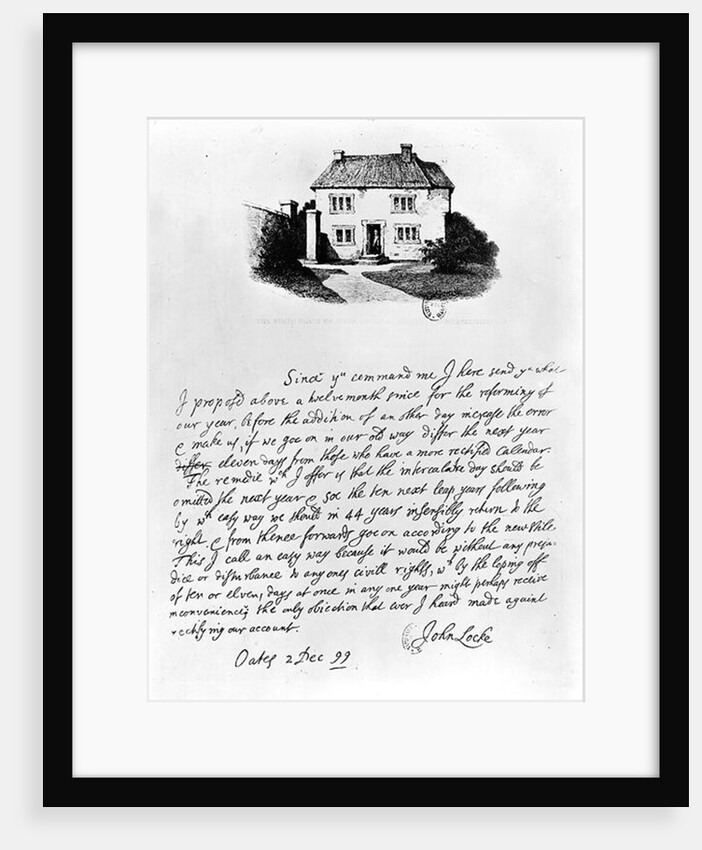 Since yu command me I here send yu what
I proposd above a twelvemonth since for the reforming of
our year, before the addition of an other day increase the error
& make us, if we goe on in our old way differ the next year
differ eleven days from those who have a more rectified Calendar.
The remedie wch I offer is that the intercalate day should be
omitted the next year & soe the ten next leap years following
by wch easy way we should in 44 years insensibly return to the
right & from thence forwards goe on according to the new stile.
This I call an easy way because it would be without any preju-
dice or disturbance to any ones civill rights, wch by the loping off
of ten or eleven days at once in any one year might perhaps receive
inconvenience, the only obiection that ever I heard made against
rectifying our account.
John Locke
Oates 2 Dec 99